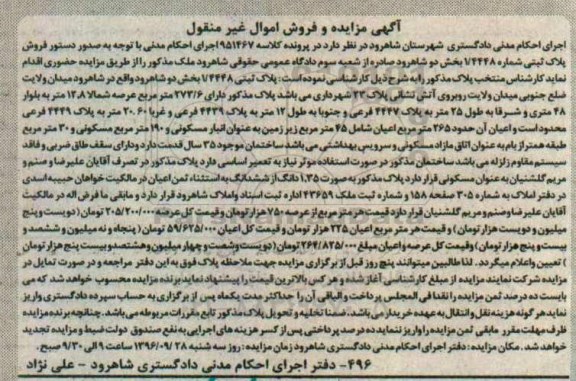 آگهی مزایده و فروش اموال غیر منقول
اجرای احکام مدنی دادگستری شهرستان شاهرود در نظر دارد در پرونده کلاسه ۹۵۱۴۶۷ اجرای احکام مدنی با توجه به صدور دستور فروش
پلاک ثبتی شماره ۱/۴۴۴۸ بخش دو شاهرود صادره از شعبه سوم دادگاه عمومی حقوقی شاهرود ملک مذکور را از طریق مزایده حضوری اقدام
نماید کارشناس منتخب پلاک مذکور را به شرح ذیل کارشناسی نموده است: پلاک ثبتی ۱/۴۴۴۸ بخش دو شاهرود واقع در شاهرود میدان ولایت
ضلع جنوبی میدان ولایت روبروی آتش نشانی پلاک ۲۳ شهرداری می باشد پلاک مذکور دارای ۲۷۳/۶ متر مربع عرصه شمالا ۱۳.۸ متر به بلوار
۴۷ متری و شرقا به طول ۲۵ متر به پلاک ۴۴۴۷ فرعی و جنوبا به طول ۱۲ متر به پلاک ۴۴۳۹ فرعی و غربا ۲۰.۶۰ متر به پلاک ۴۴۴۹ فرعی
محدود است و اعیان آن حدود ۲۶۵ متر مربع اعیان شامل ۴۵ متر مربع زیر زمین به عنوان انبار مسکونی و ۱۹۰ متر مربع مسکونی و ۳۰ متر مربع
طبقه همتراز بام به عنوان اتاق مازاد مسکونی و سرویس بهداشتی می باشد ساختمان موجود ۳۵ سال قدمت دارد و دارای سقف طاق ضربی و فاقد
سیستم مقاوم زلزله می باشد ساختمان مذکور در صورت استفاده موثر نیاز به تعمیر اساسی دارد پلاک مذکور در تصرف آقایان علیرضا و صنم و
مریم گلشنیان به عنوان مسکونی قرار دارد پلاک مذکور به صورت ۱.۳۵ دانگ از ششدانگ به استثناء ثمن اعیان در مالکیت خواهان حبیبه اسدی
در دفتر املاک به شماره ۳۰۵ صفحه ۱۵۸ و شماره ثبت ملک ۴۳۶۵۹ اداره ثبت اسناد و املاک شاهرود قرار دارد و مابقی ما فرض اله در مالکیت
آقایان علیرضا و صنم و مریم گلشنیان قرار دارد قیمت هر متر مربع از عرصه ۷۵۰ هزار تومان و قیمت کل عرصه ۲۰۵/۲۰۰/۰۰۰ تومان (دویست و پنج
میلیون و دویست هزار تومان) و قیمت هر متر مربع اعیان ۲۲۵ هزار تومان و قیمت کل اعیان ۵۹/۶۲۵/۰۰۰ تومان (پنجاه و نه میلیون و ششصد و
بیست و پنج هزار تومان) و قیمت کل عرصه و اعیان مبلغ ۲۶۴/۸۲۵/۰۰۰ تومان (دویست و شصت و چهار میلیون و هشتصد و بیست پنج هزار تومان
) تعیین و اعلام میگردد. لذا طالبین میتوانند پنج روز قبل از برگزاری مزایده جهت ملاحظه پلاک فوق به این دفتر مراجعه و در صورت تمایل در
مزایده شرکت نمایند مزایده از مبلغ کارشناسی آغاز شده و هر کس بالاترین قیمت را پیشنهاد نماید برنده مزایده محسوب خواهد شد که می
بایست ده درصد ثمن مزایده را نقدا فی المجلس پرداخت و الباقی آن را حداکثر مدت یکماه پس از برگزاری به حساب سپرده دادگستری واریز
نماید هر گونه هزینه نقل و انتقال به عهده خریدار می باشد. ضمنا تخلیه و تحویل پلاک مذکور تابع مقررات مربوطه می باشد. چنانچه برنده مزایده
ظرف مهلت مقرر مابقی ثمن مزایده را واریز ننماید ده درصد پرداختی پس از کسر هزینه های اجرایی به نفع صندوق دولت ضبط و مزایده تجدید
خواهد شد. مکان مزایده: دفتر اجرای احکام مدنی دادگستری شاهرود زمان مزایده: روز سه شنبه ۱۳۹۶/۰۹/۲۸ ساعت ۹ الی ۹/۳۰ صبح.
۴۹۶- دفتر اجرای احکام مدنی دادگستری شاهرود - علی نژاد